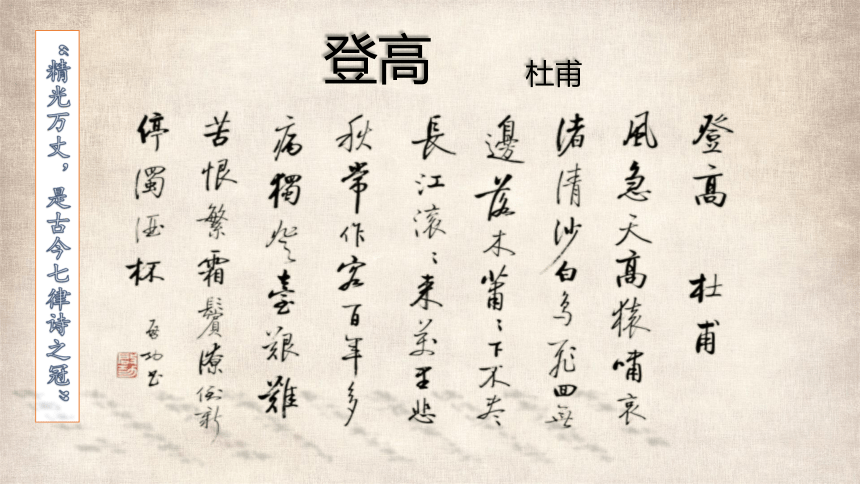 登高
杜甫
“精光万丈，是古今七律诗之冠”
登高 杜甫
風急天高猿嘯哀
渚清沙白鸟飛回無
邊落木蕭〻下不尽
長江滚〻来萬里悲
秋常作客百年多
病獨登臺艱難
苦恨繁霜鬢潦倒新
停濁酒杯
啓功书